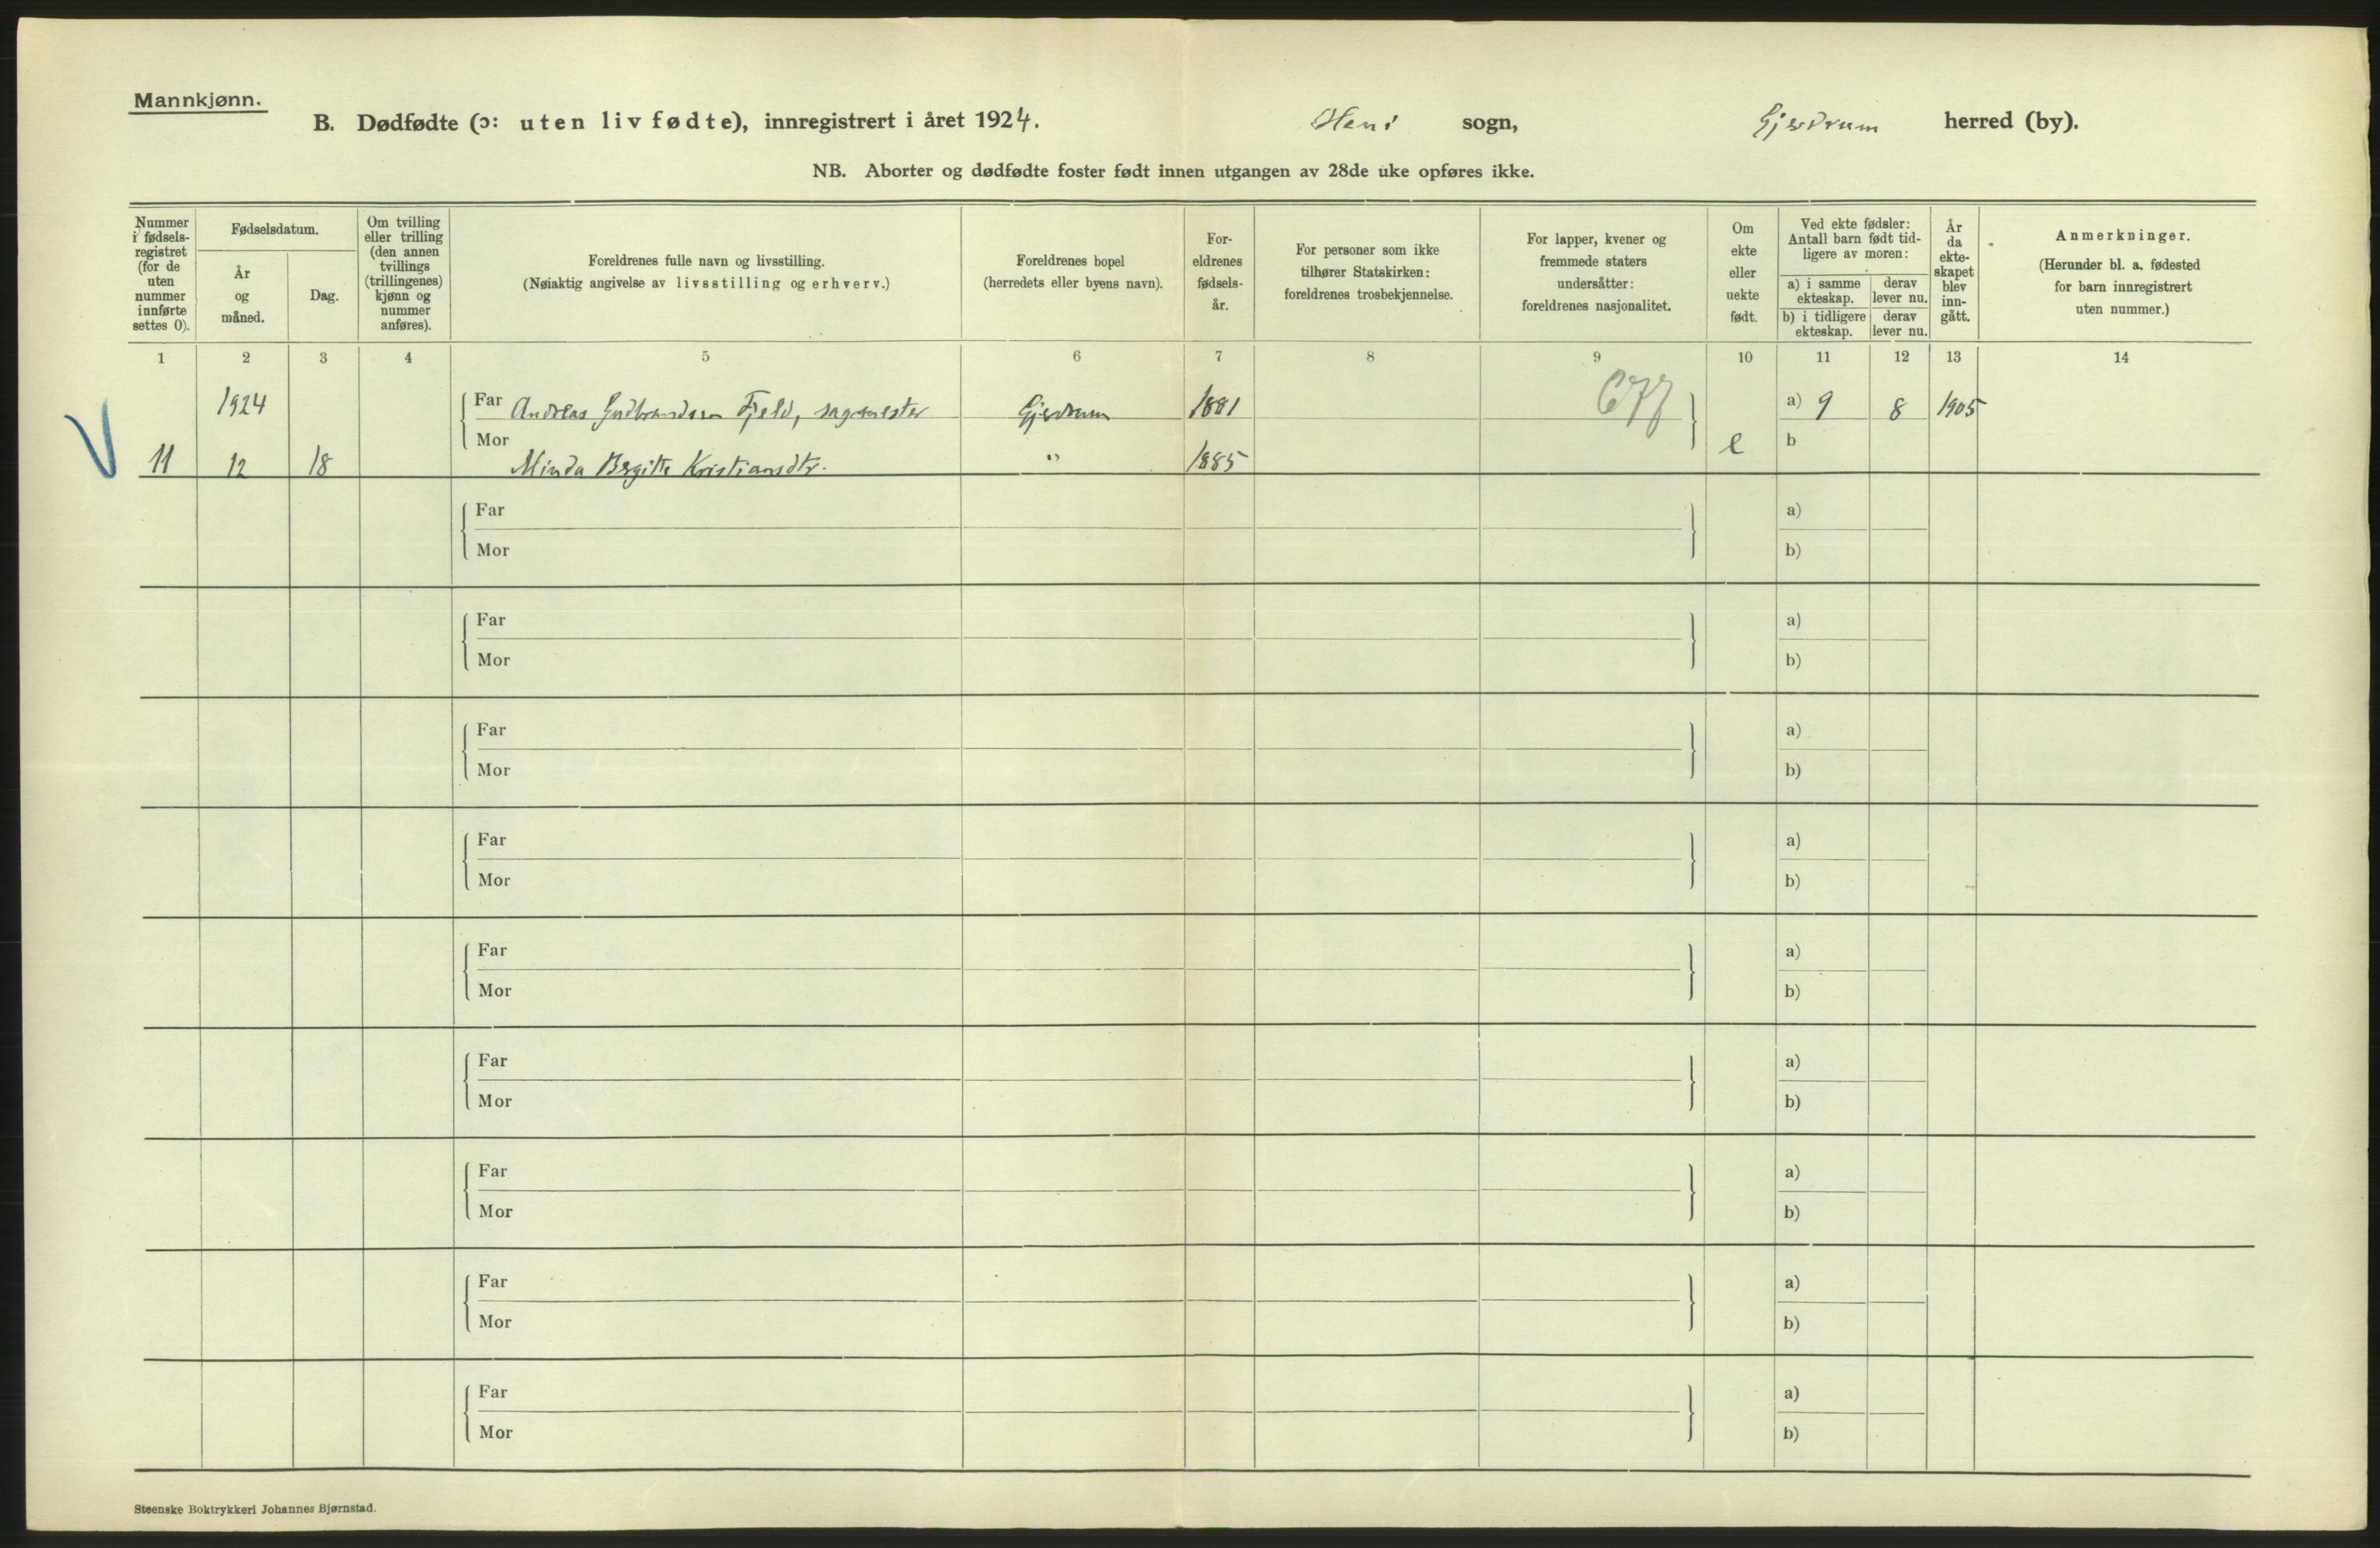 Mannkjønn.
B. Dødfødte (ɔ: uten liv fødte), innregistrert i året 1924. Heni sogn, Gjerdrum herred (by).
NB. Aborter og dødfødte foster født innen utgangen av 28de uke opføres ikke.
Nummer i fødselsregistret (for de uten nummer innførte settes 0).
Fødselsdatum.
År og måned.
Dag.
Om tvilling eller trilling (den annen tvillings (trillingenes) kjønn og nummer anføres).
Foreldrenes fulle navn og livsstilling.
(Nøiaktig angivelse av livsstilling og erhverv.)
Foreldrenes bopel
(herredets eller byens navn).
Foreldrenes fødselsår.
For personer som ikke tilhører Statskirken: foreldrenes trosbekjennelse.
For lapper, kvener og fremmede staters undersåtter: foreldrenes nasjonalitet.
Om ekte eller uekte født.
Ved ekte fødsler: Antall barn født tidligere av moren:
a) i samme ekteskap. derav lever nu.
b) i tidligere ekteskap. derav lever nu.
År da ekteskapet blev inngått.
Anmerkninger.
(Herunder bl. a. fødested for barn innregistrert uten nummer.)
1 2 3 4 5 6 7 8 9 10 11 12 13 14
1924 Far Andreas Gudbrandsen Fjeld, sagmester Gjerdrum 1881 677 a) 9 8 1905
V 11 12 18 Mor Minda Bergitte Kristiansdtr. " 1885 e b
Far a)
Mor b)
Far a)
Mor b)
Far a)
Mor b)
Far a)
Mor b)
Far a)
Mor b)
Far a)
Mor b)
Far a)
Mor b)
Far a)
Mor b)
Far a)
Mor b)
Steenske Boktrykkeri Johannes Bjørnstad.